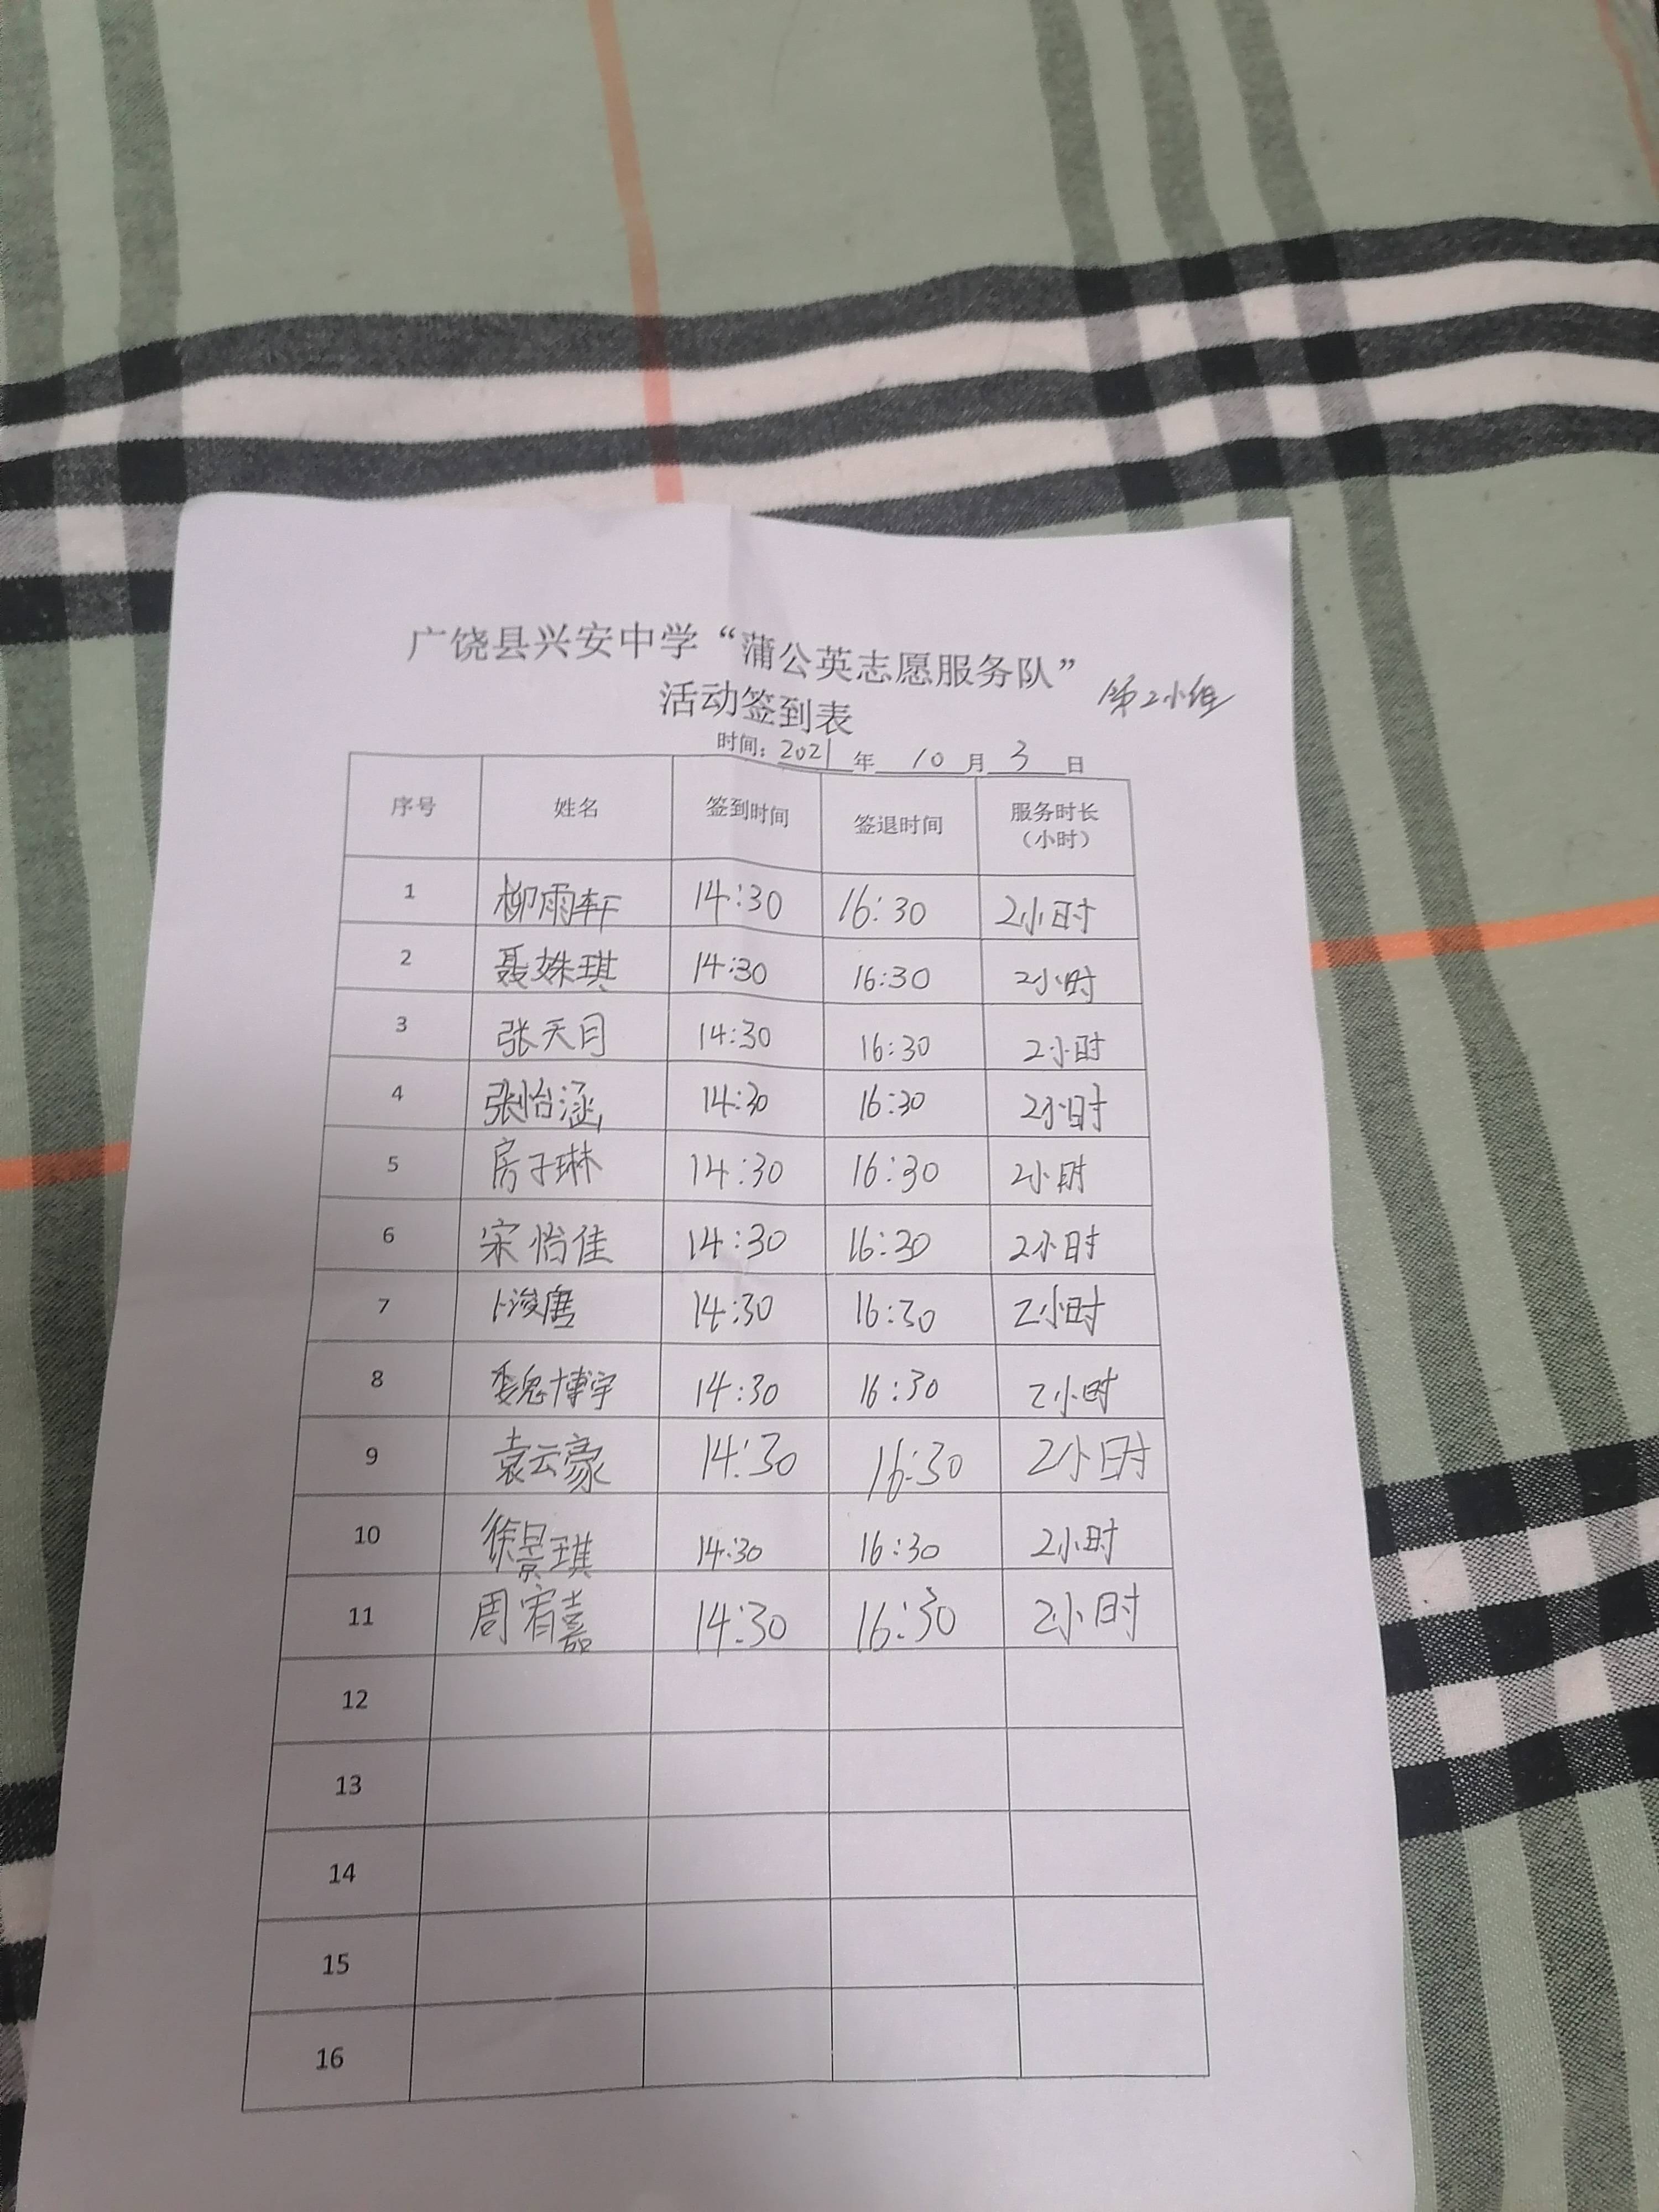 广饶县兴安中学“蒲公英志愿服务队”
活动签到表 第2小组
时间：2021年10月3日
序号 姓名 签到时间 签退时间 服务时长（小时）
1 柳雨轩 14:30 16:30 2小时
2 聂姝琪 14:30 16:30 2小时
3 张天月 14:30 16:30 2小时
4 张怡涵 14:30 16:30 2小时
5 房子琳 14:30 16:30 2小时
6 宋怡佳 14:30 16:30 2小时
7 卜浚唐 14:30 16:30 2小时
8 魏博宇 14:30 16:30 2小时
9 袁云豪 14:30 16:30 2小时
10 徐景琪 14:30 16:30 2小时
11 周宥嘉 14:30 16:30 2小时
12
13
14
15
16